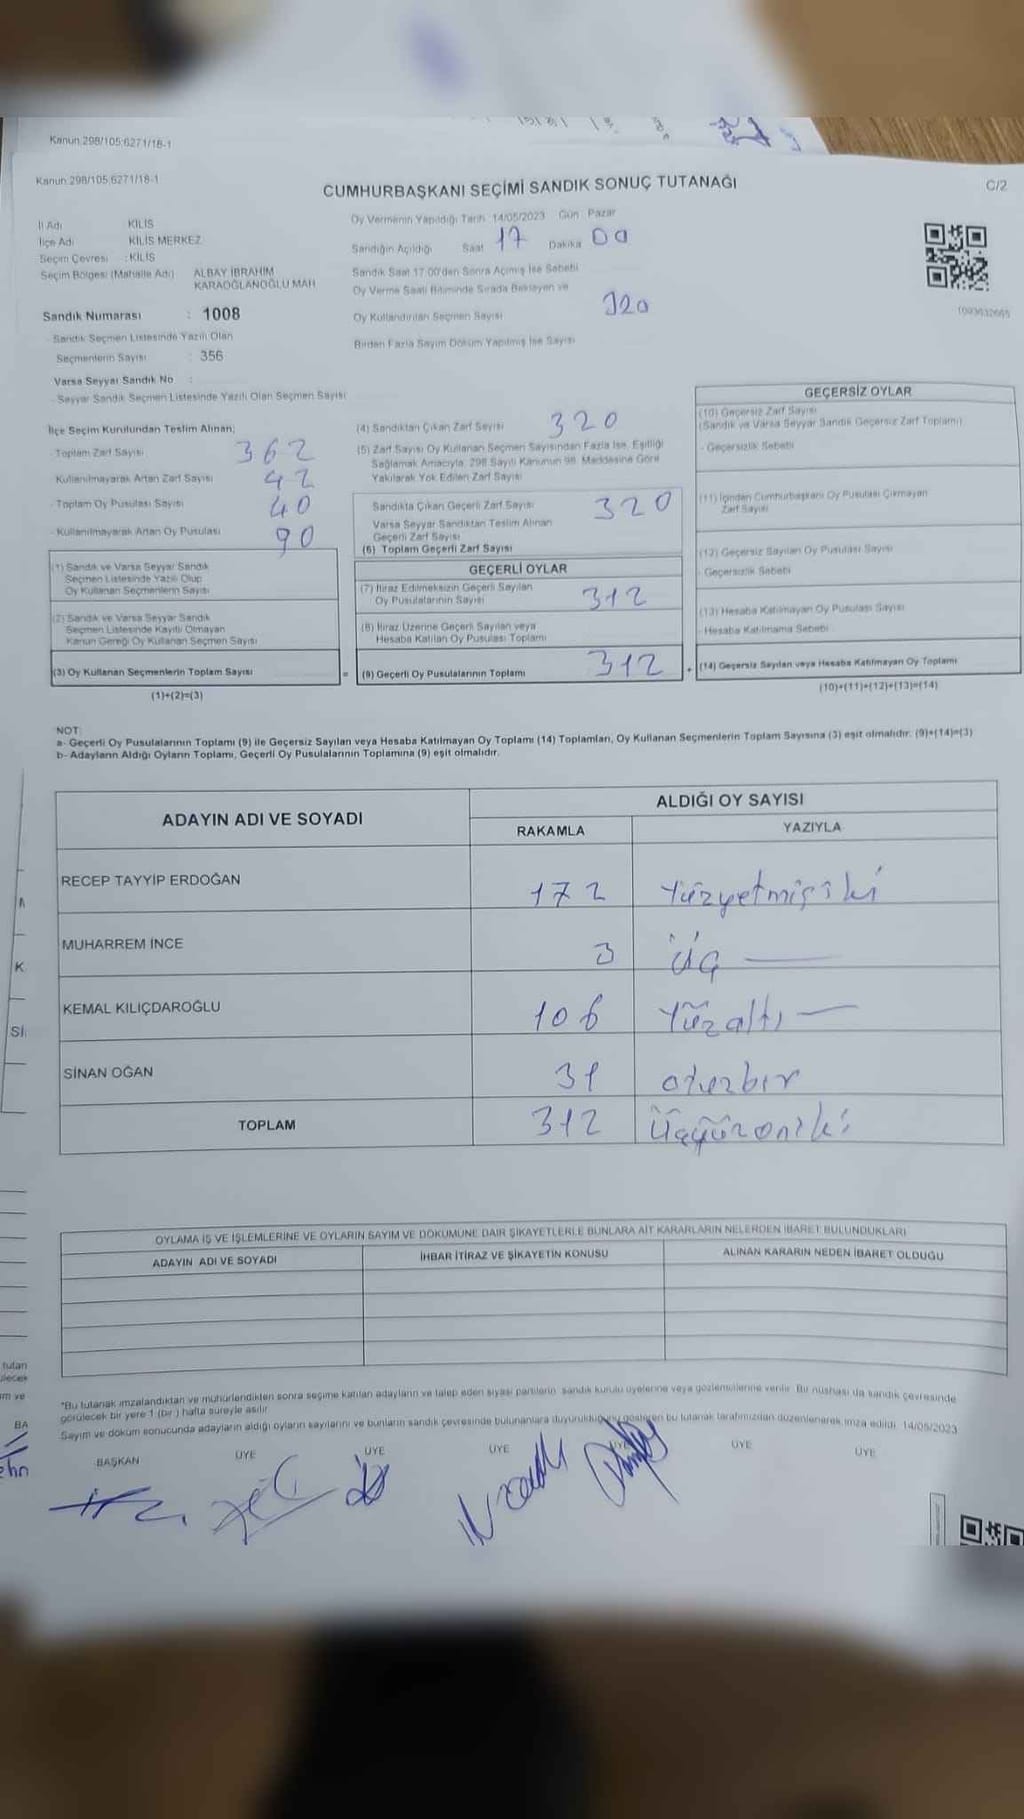 Kanun:298/105:6271/18-1
Kanun:298/105:6271/18-1
CUMHURBAŞKANI SEÇİMİ SANDIK SONUÇ TUTANAĞI
C/2
İl Adı KİLİS
İlçe Adı KİLİS MERKEZ
Seçim Çevresi : KİLİS
Seçim Bölgesi (Mahalle Adı) ALBAY İBRAHİM
KARAOĞLANOĞLU MAH
Sandık Numarası : 1008
Sandık Seçmen Listesinde Yazılı Olan
Seçmenlerin Sayısı : 356
Varsa Seyyar Sandık No :
- Seyyar Sandık Seçmen Listesinde Yazılı Olan Seçmen Sayısı
Oy Vermenin Yapıldığı Tarih : 14/05/2023 Gün : Pazar
Sandığın Açıldığı Saat 17 Dakika 00
Sandık Saat 17.00'den Sonra Açılmış İse Sebebi
Oy Verme Saati Bitiminde Sırada Bekleyen ve
Oy Kullandırılan Seçmen Sayısı 320
Birden Fazla Sayım Döküm Yapılmış İse Sayısı
İlçe Seçim Kurulundan Teslim Alınan;
- Toplam Zarf Sayısı 362
- Kullanılmayarak Artan Zarf Sayısı 42
- Toplam Oy Pusulası Sayısı 40
- Kullanılmayarak Artan Oy Pusulası 90
(1) Sandık ve Varsa Seyyar Sandık
Seçmen Listesinde Yazılı Olup
Oy Kullanan Seçmenlerin Sayısı
(2) Sandık ve Varsa Seyyar Sandık
Seçmen Listesinde Kayıtlı Olmayan
Kanun Gereği Oy Kullanan Seçmen Sayısı
(3) Oy Kullanan Seçmenlerin Toplam Sayısı
(1)+(2)=(3)
(4) Sandıktan Çıkan Zarf Sayısı 320
(5) Zarf Sayısı Oy Kullanan Seçmen Sayısından Fazla İse, Eşitliği
Sağlamak Amacıyla, 298 Sayılı Kanunun 98. Maddesine Göre
Yakılarak Yok Edilen Zarf Sayısı
Sandıkta Çıkan Geçerli Zarf Sayısı 320
Varsa Seyyar Sandıktan Teslim Alınan
Geçerli Zarf Sayısı
(6) Toplam Geçerli Zarf Sayısı
GEÇERLİ OYLAR
(7) İtiraz Edilmeksizin Geçerli Sayılan
Oy Pusulalarının Sayısı 312
(8) İtiraz Üzerine Geçerli Sayılan veya
Hesaba Katılan Oy Pusulası Toplamı
= (9) Geçerli Oy Pusulalarının Toplamı 312
GEÇERSİZ OYLAR
(10) Geçersiz Zarf Sayısı
(Sandık ve Varsa Seyyar Sandık Geçersiz Zarf Toplamı)
- Geçersizlik Sebebi
(11) İçinden Cumhurbaşkanı Oy Pusulası Çıkmayan
Zarf Sayısı
(12) Geçersiz Sayılan Oy Pusulası Sayısı
- Geçersizlik Sebebi
(13) Hesaba Katılmayan Oy Pusulası Sayısı
- Hesaba Katılmama Sebebi
+ (14) Geçersiz Sayılan veya Hesaba Katılmayan Oy Toplamı
(10)+(11)+(12)+(13)=(14)
NOT:
a- Geçerli Oy Pusulalarının Toplamı (9) ile Geçersiz Sayılan veya Hesaba Katılmayan Oy Toplamı (14) Toplamları, Oy Kullanan Seçmenlerin Toplam Sayısına (3) eşit olmalıdır. (9)+(14)=(3)
b- Adayların Aldığı Oyların Toplamı, Geçerli Oy Pusulalarının Toplamına (9) eşit olmalıdır.
ADAYIN ADI VE SOYADI ALDIĞI OY SAYISI
RAKAMLA YAZIYLA
RECEP TAYYİP ERDOĞAN 172 Yüzyetmişiki
MUHARREM İNCE 3 Üç
KEMAL KILIÇDAROĞLU 106 Yüzaltı
SİNAN OĞAN 31 otuzbir
TOPLAM 312 Üçyüzoniki
OYLAMA İŞ VE İŞLEMLERİNE VE OYLARIN SAYIM VE DÖKÜMÜNE DAİR ŞİKAYETLERLE BUNLARA AİT KARARLARIN NELERDEN İBARET BULUNDUKLARI
ADAYIN ADI VE SOYADI İHBAR İTİRAZ VE ŞİKAYETİN KONUSU ALINAN KARARIN NEDEN İBARET OLDUĞU
*Bu tutanak imzalandıktan ve mühürlendikten sonra seçime katılan adayların ve talep eden siyasi partilerin sandık kurulu üyelerine veya gözlemcilerine verilir. Bu nüshası da sandık çevresinde
görülecek bir yere 1 (bir) hafta süreyle asılır.
Sayım ve döküm sonucunda adayların aldığı oyların sayılarını ve bunların sandık çevresinde bulunanlara duyurulduğunu gösteren bu tutanak tarafımızdan düzenlenerek imza edildi. 14/05/2023
BAŞKAN ÜYE ÜYE ÜYE ÜYE ÜYE ÜYE